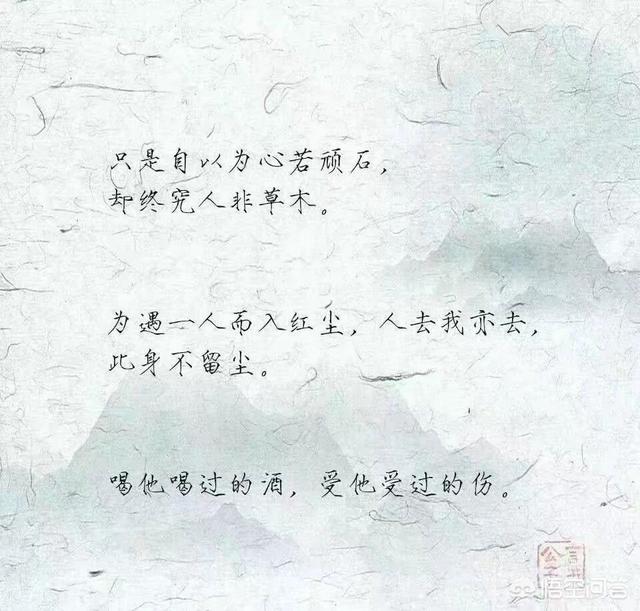 只是自以为心若顽石，
却终究人非草木。
为遇一人而入红尘，人去我亦去，
此身不留尘。
喝他喝过的酒，受他受过的伤。
公子
悟空问答